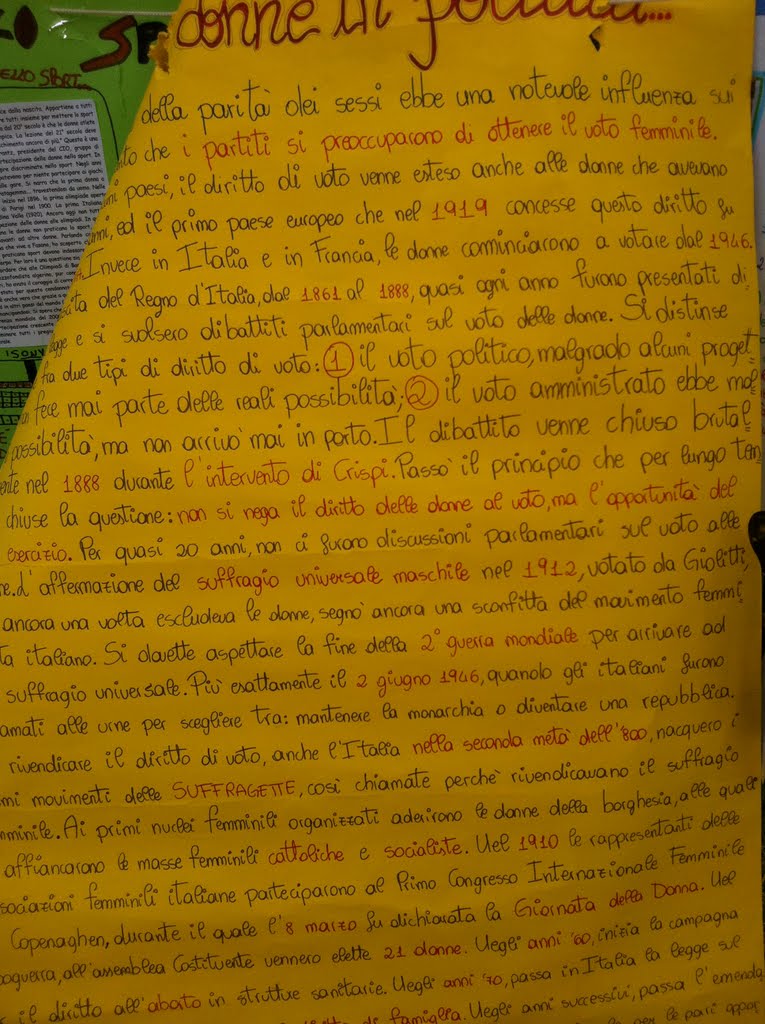 donne in politica...
SP
ELLO SPORT...
della parità dei sessi ebbe una notevole influenza sui
to che i partiti si preoccuparono di ottenere il voto femminile.
ni paesi, il diritto di voto venne esteso anche alle donne che avevano
nni, ed il primo paese europeo che nel 1919 concesse questo diritto fu
Invece in Italia e in Francia, le donne cominciarono a votare dal 1946.
ita del Regno d'Italia, dal 1861 al 1888, quasi ogni anno furono presentati di
egge e si svolsero dibattiti parlamentari sul voto delle donne. Si distinse
fra due tipi di diritto di voto: 1 il voto politico, malgrado alcuni proget
fece mai parte delle reali possibilità; 2 il voto amministrato ebbe mol
possibilità, ma non arrivò mai in porto. Il dibattito venne chiuso brutal
ente nel 1888 durante l'intervento di Crispi. Passò il principio che per lungo tem
chiuse la questione: non si nega il diritto delle donne al voto, ma l'opportunità del
esercizio. Per quasi 20 anni, non ci furono discussioni parlamentari sul voto alle
ne. L'affermazione del suffragio universale maschile nel 1912, votato da Giolitti,
ancora una volta escludeva le donne, segnò ancora una sconfitta del movimento femmi
ta italiano. Si dovette aspettare la fine della 2° guerra mondiale per arrivare ad
suffragio universale. Più esattamente il 2 giugno 1946, quando gli italiani furono
amati alle urne per scegliere tra: mantenere la monarchia o diventare una repubblica.
rivendicare il diritto di voto, anche l'Italia nella seconda metà dell'800, nacquero i
mi movimenti delle SUFFRAGETTE, così chiamate perchè rivendicavano il suffragio
mminile. Ai primi nuclei femminili organizzati aderirono le donne della borghesia, alle quali
affiancarono le masse femminili cattoliche e socialiste. Nel 1910 le rappresentanti delle
sociazioni femminili italiane parteciparono al Primo Congresso Internazionale Femminile
Copenaghen, durante il quale l'8 marzo fu dichiarata la Giornata della Donna. Nel
poguerra, all'assemblea Costituente vennero elette 21 donne. Negli anni '60, inizia la campagna
r il diritto all'aborto in strutture sanitarie. Negli anni '70, passa in Italia la legge sul
di famiglia. Negli anni successivi, passa l'emenda
per le pari oppor